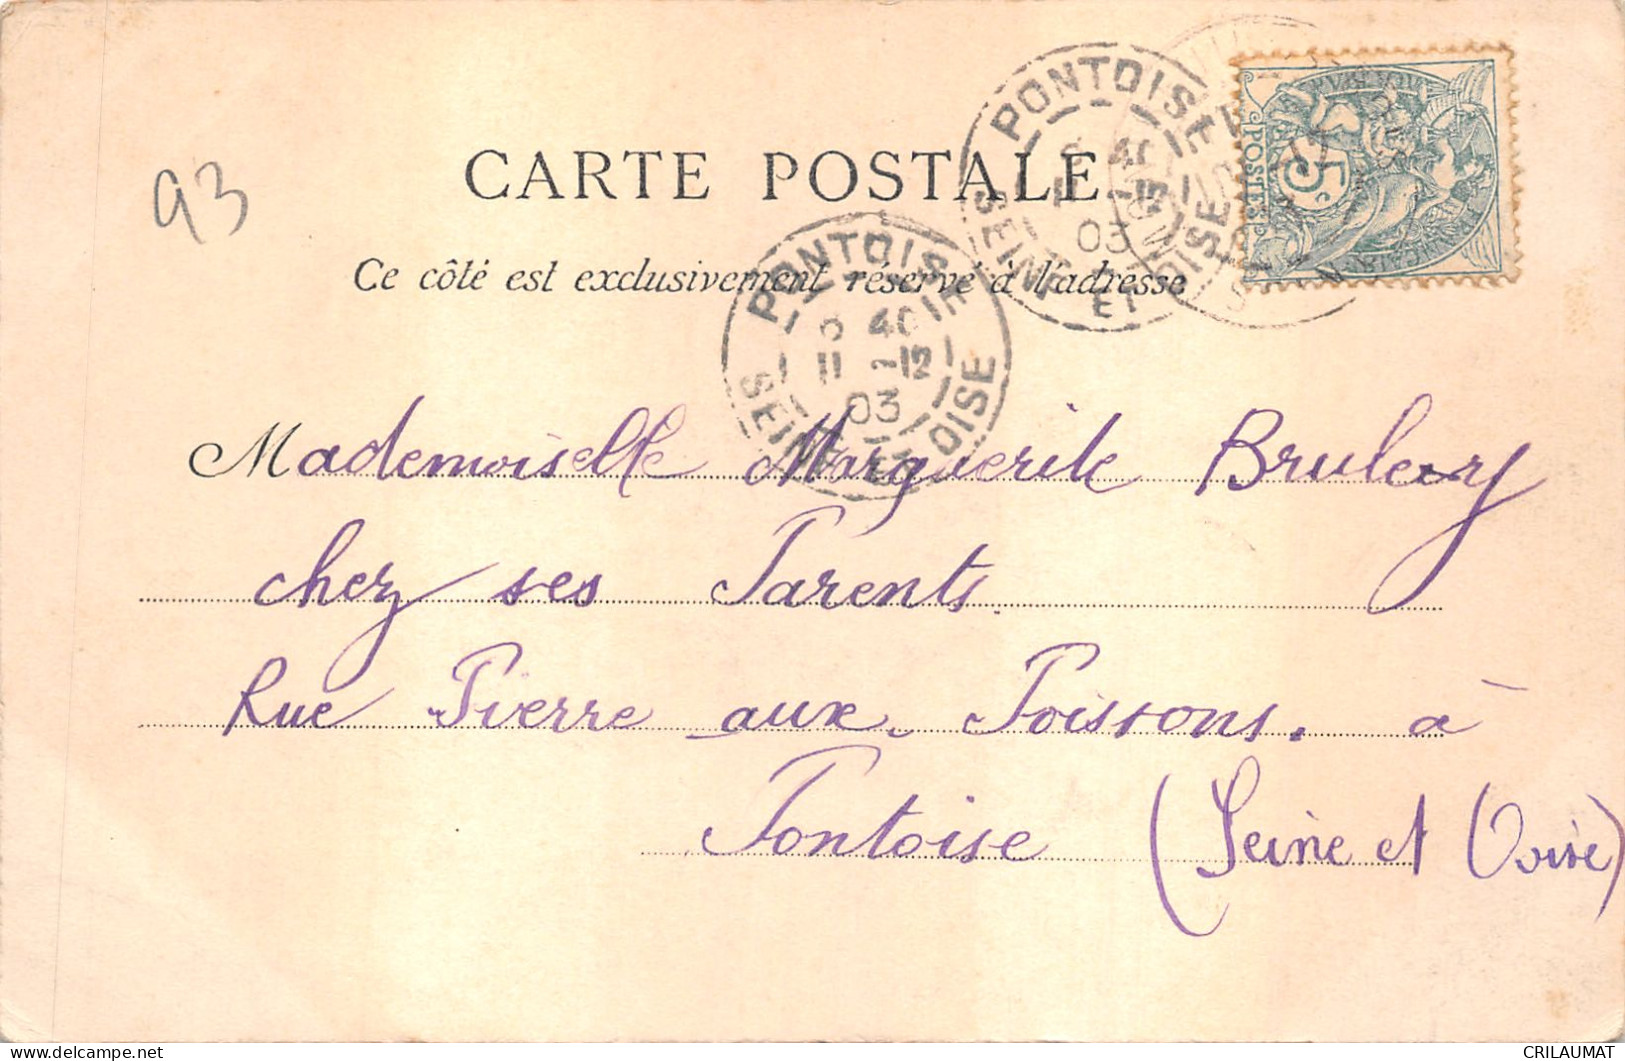 93
CARTE POSTALE
Ce côté est exclusivement réservé à l'adresse
PONTOISE
SEINE ET OISE
11 -12
03
PONTOISE
SEINE ET OISE
6 40
11 -12
03
POSTES
5c
Mademoiselle Marguerite Brulery
chez ses Parents
Rue Pierre aux Poissons. à
Pontoise (Seine et Oise)
CRILAUMAT